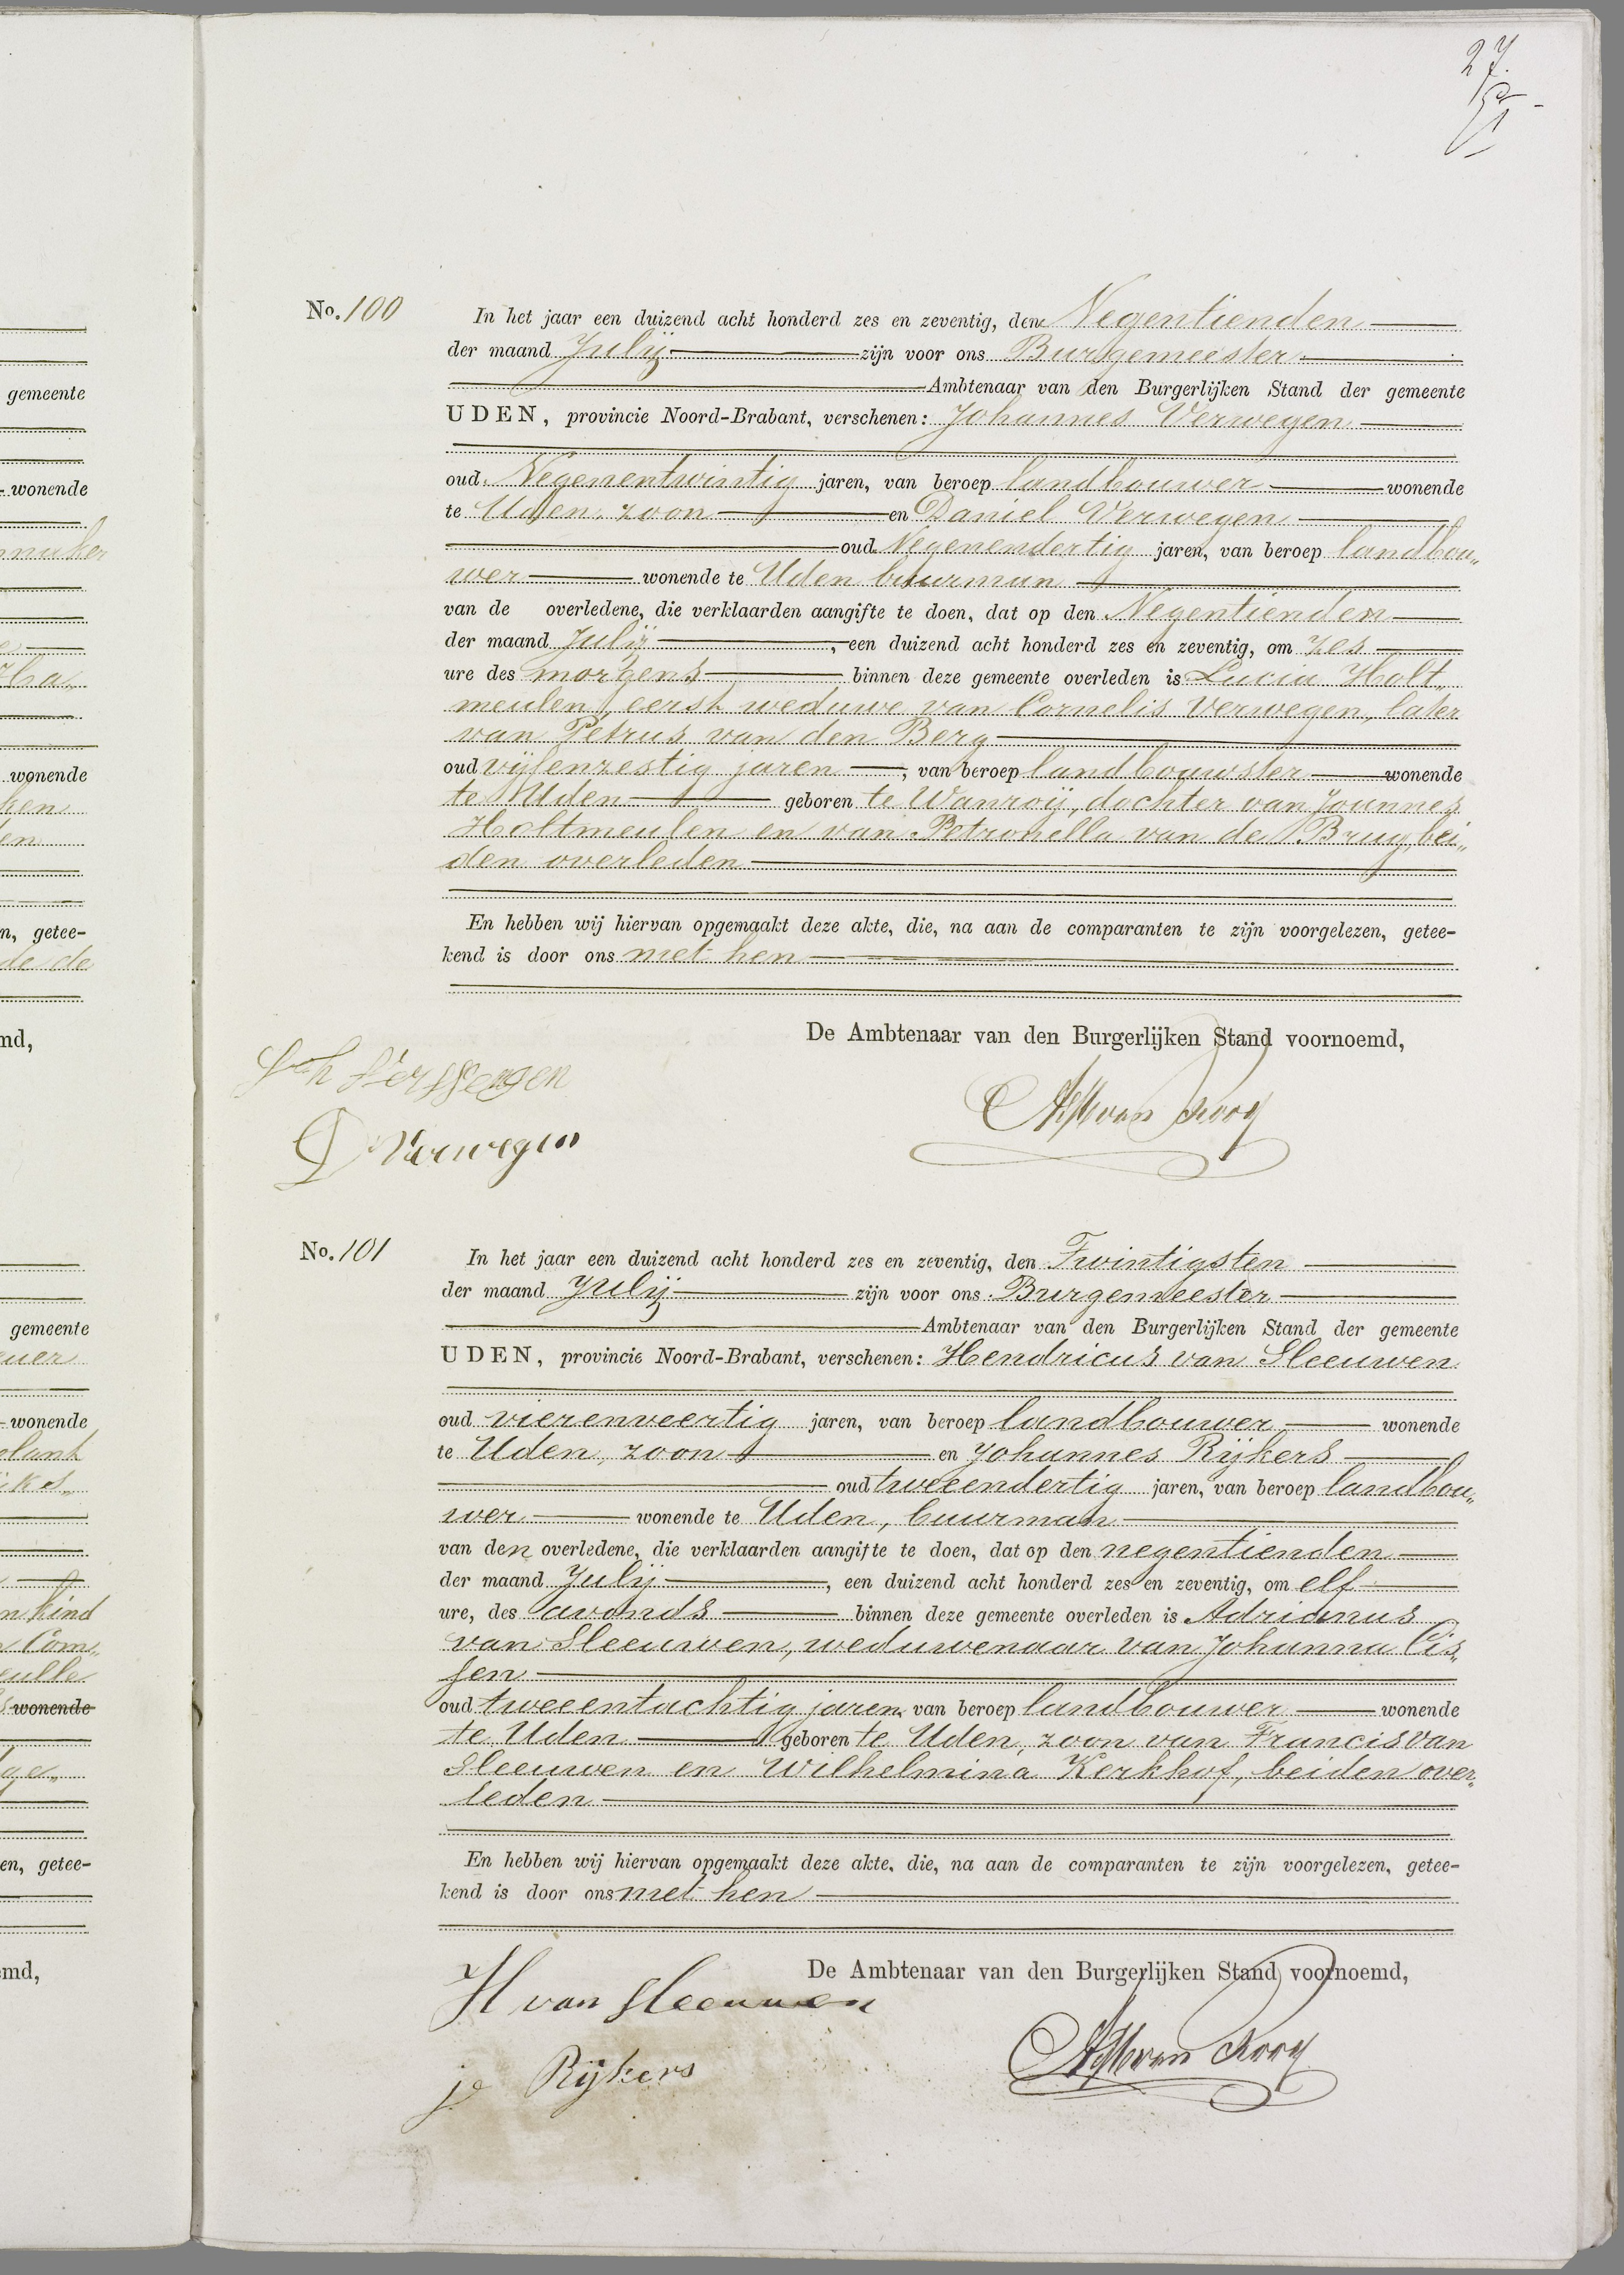 27.
No. 100
In het jaar een duizend acht honderd zes en zeventig, den Negentienden
der maand Julij zijn voor ons Burgemeester
Ambtenaar van den Burgerlijken Stand der gemeente
UDEN, provincie Noord-Brabant, verschenen: Johannes Verwegen
oud Negenentwintig jaren, van beroep landbouwer wonende
te Uden, zoon en Daniel Verwegen
oud Negenendertig jaren, van beroep landbou„
wer wonende te Uden buurman
van de overledene, die verklaarden aangifte te doen, dat op den Negentienden
der maand Julij, een duizend acht honderd zes en zeventig, om zes
ure des morgens binnen deze gemeente overleden is Lucia Holt„
meulen, eerst weduwe van Cornelis Verwegen, later
van Petrus van den Berg
oud vijfenzestig jaren, van beroep landbouwster wonende
te Uden geboren te Wanroij, dochter van Joannes
Holtmeulen en van Petronella van de Brug, bei„
den overleden
En hebben wij hiervan opgemaakt deze akte, die, na aan de comparanten te zijn voorgelezen, getee-
kend is door ons met hen
De Ambtenaar van den Burgerlijken Stand voornoemd,
Verwegen
D Verwegen
No. 101
In het jaar een duizend acht honderd zes en zeventig, den Twintigsten
der maand Julij zijn voor ons Burgemeester
Ambtenaar van den Burgerlijken Stand der gemeente
UDEN, provincie Noord-Brabant, verschenen: Hendricus van Sleeuwen
oud vierenveertig jaren, van beroep landbouwer wonende
te Uden, zoon en Johannes Rijkers
oud tweeendertig jaren, van beroep landbou„
wer wonende te Uden, buurman
van den overledene, die verklaarden aangifte te doen, dat op den negentienden
der maand Julij, een duizend acht honderd zes en zeventig, om elf
ure, des avonds binnen deze gemeente overleden is Adrianus
van Sleeuwen, weduwenaar van Johanna Cis„
sen
oud tweeentachtig jaren, van beroep landbouwer wonende
te Uden geboren te Uden, zoon van Francis van
Sleeuwen en Wilhelmina Kerkhof, beiden over„
leden
En hebben wij hiervan opgemaakt deze akte, die, na aan de comparanten te zijn voorgelezen, getee-
kend is door ons met hen
De Ambtenaar van den Burgerlijken Stand voornoemd,
H van Sleeuwen
Rijkers